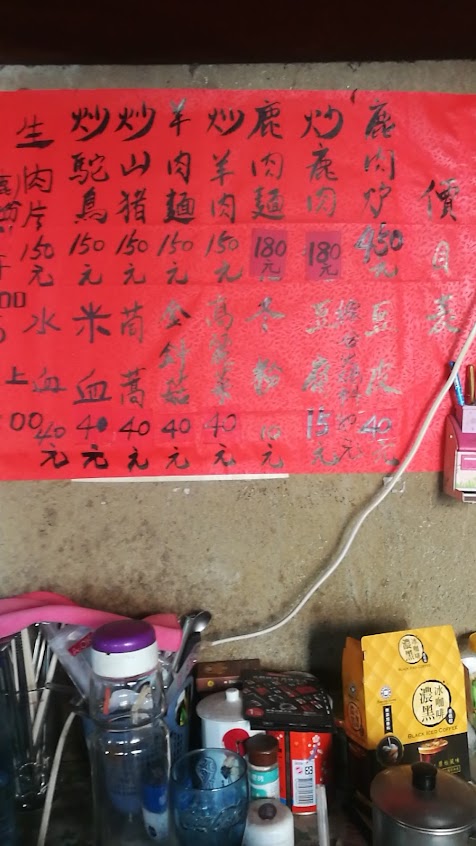 價目表
鹿肉炉 450元
炒鹿肉 180元
鹿肉麵 180元
炒羊肉 150元
羊肉麵 150元
炒山猪 150元
炒駝鳥 150元
生肉片 150元
豆皮 40元
豆腐 15元
冬粉 10元
高麗菜 40元
金針菇 40元
茼蒿 40元
米血 40元
水血 40元
上
冰咖啡
濃黑
BLACK ICED COFFEE